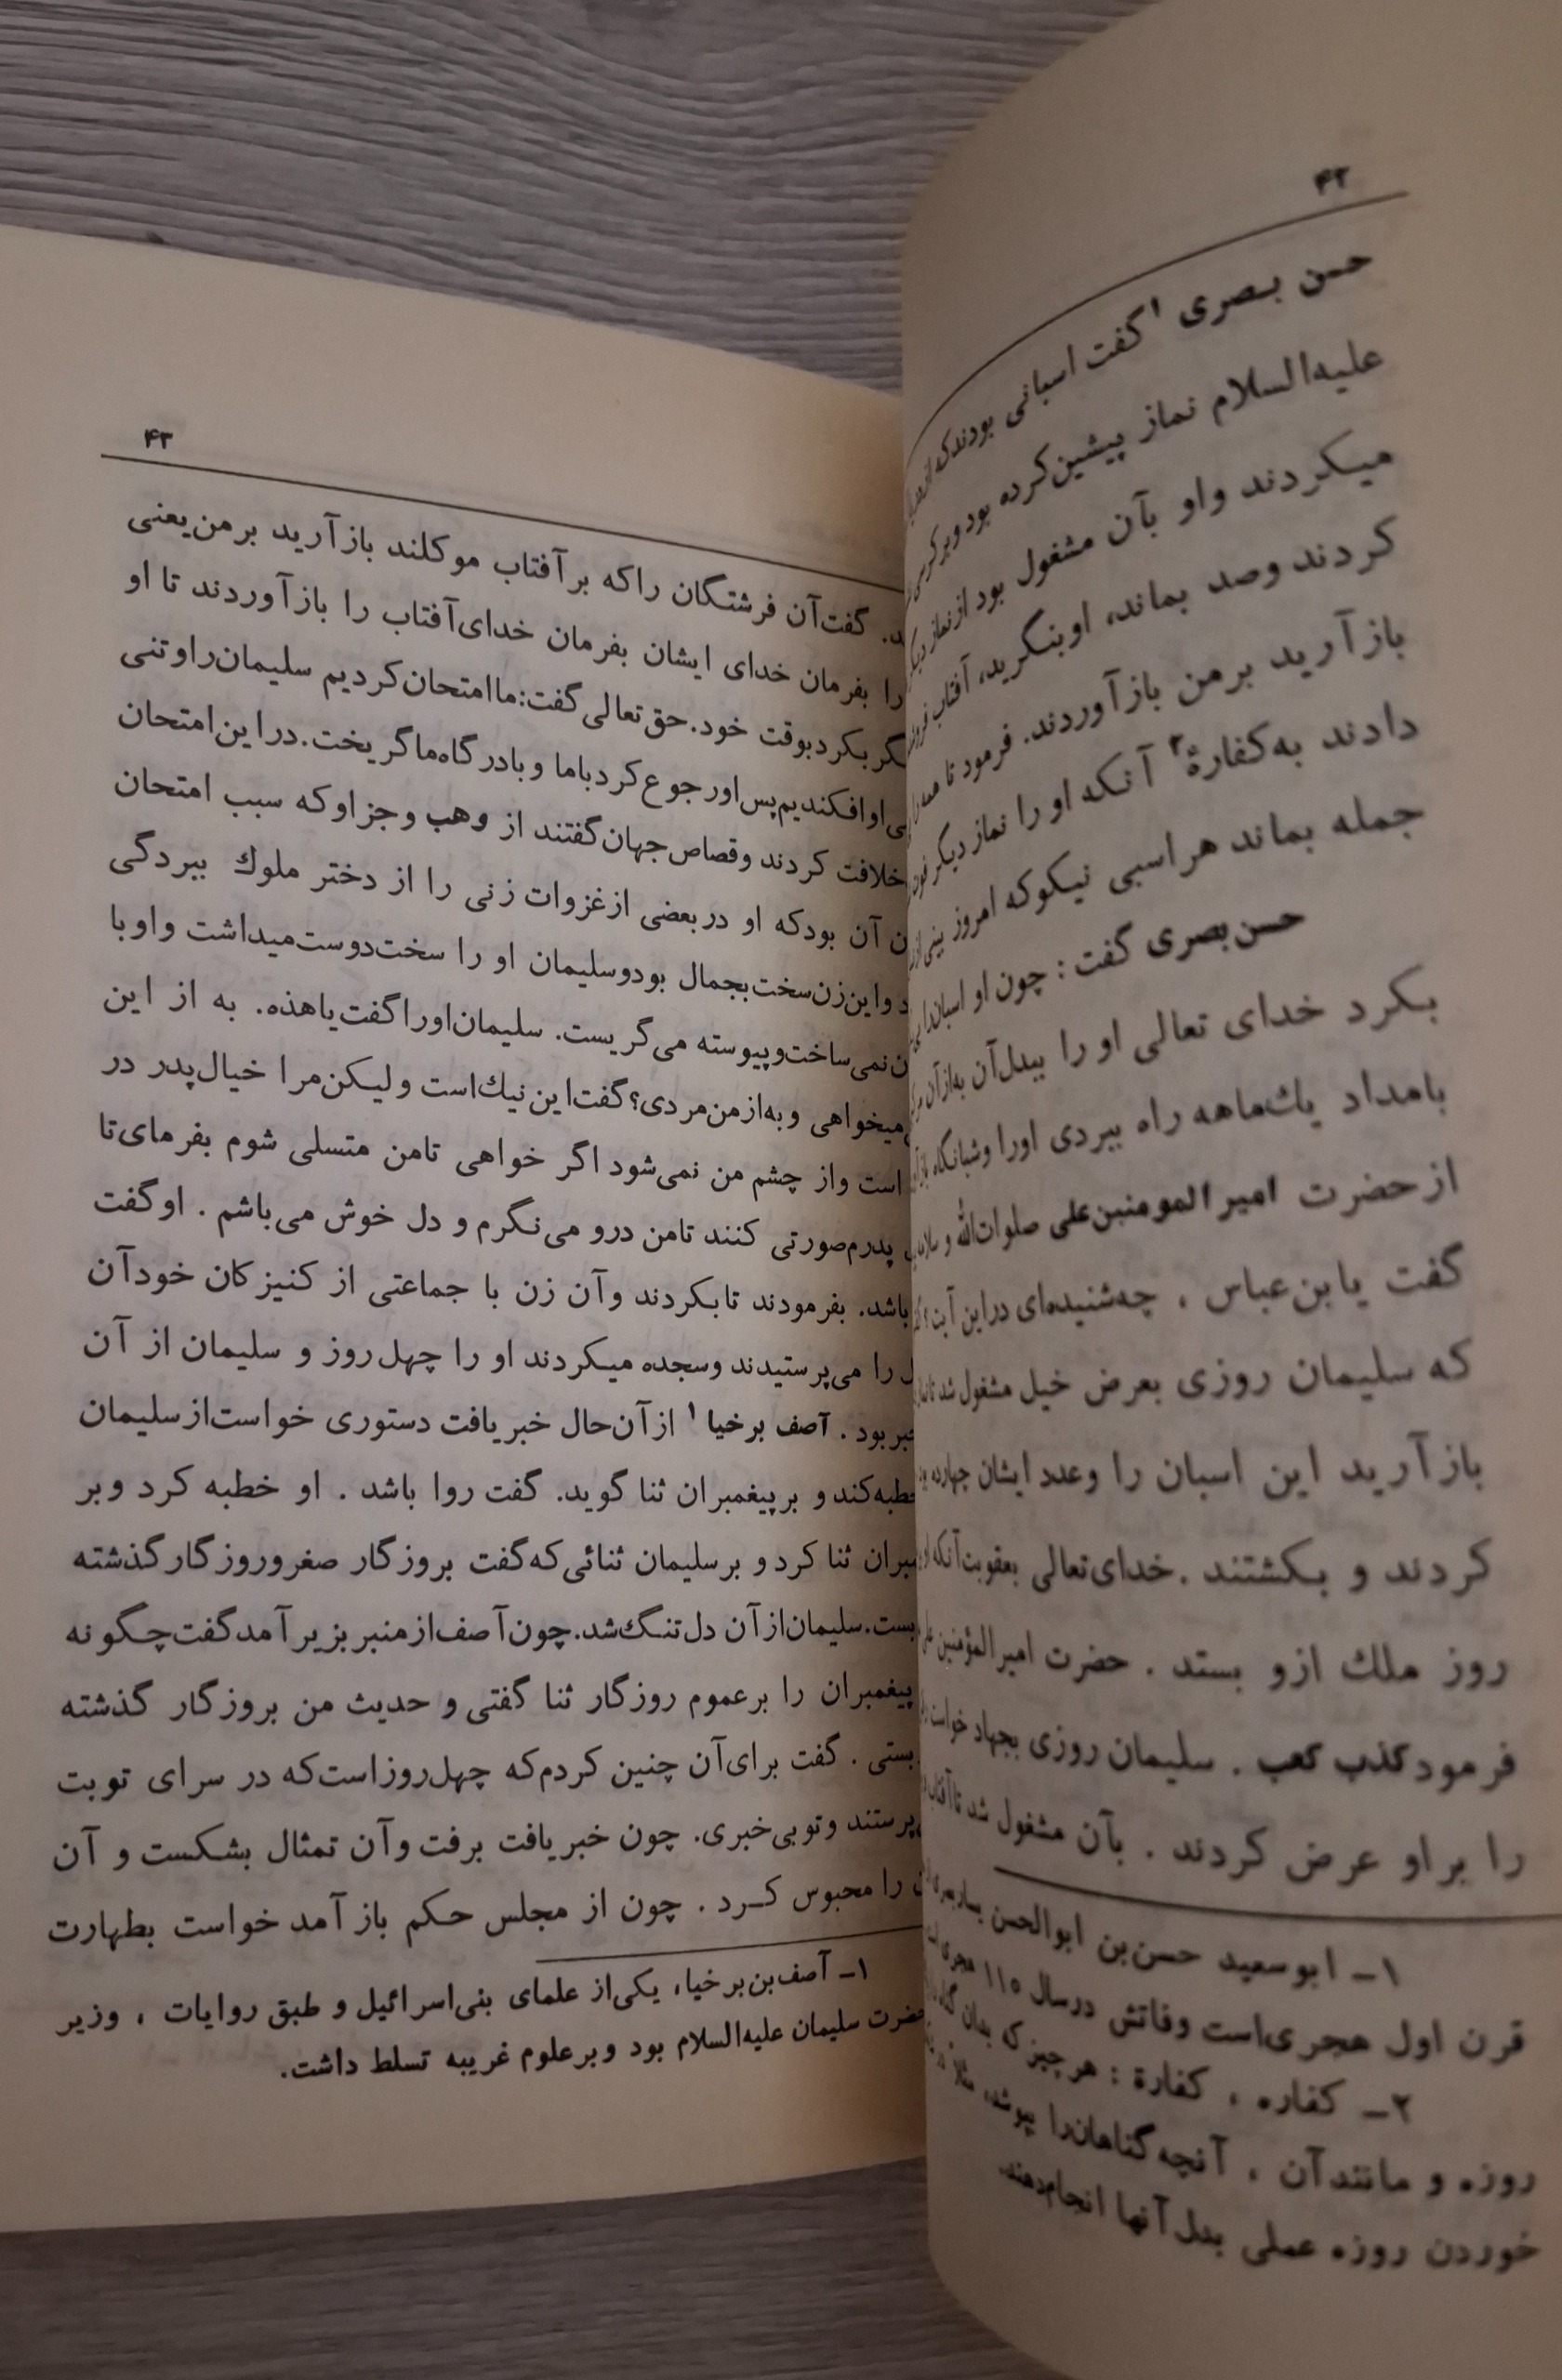 ۴۲
حسن بصری ۱ گفت اسبانی بودند که از
علیه‌السلام نماز پیشین کرده بود و بر کرسی
میکردند و او بآن مشغول بود از نماز دیگر
کردند و صد بماند، او بنگرید، آفتاب
باز آرید بر من باز آوردند. فرمود تا همه را
دادند به کفارهٔ ۲ آنکه او را نماز دیگر فوت
جمله بماند هر اسبی نیکو که امروز بینی از
حسن بصری گفت : چون او اسبان را
بکرد خدای تعالی او را ببدل آن به از آن
بامداد یك‌ماهه راه ببردی او را و شبانگاه
از حضرت امیر المومنین علی صلوات‌الله و
گفت یا بن عباس ، چه شنیده‌ای در این آیت؟
که سلیمان روزی بعرض خیل مشغول شد
باز آرید این اسبان را و عدد ایشان چهارده
کردند و بکشتند . خدای تعالی بعقوبت آنکه او
روز ملك ازو بستد . حضرت امیر المؤمنین
فرمود کذب کعب . سلیمان روزی بجهاد خواست
را بر او عرض کردند . بآن مشغول شد تا آفتاب
۱ـ ابو سعید حسن بن ابوالحسن یسار بصری
قرن اول هجری است و وفاتش در سال ۱۱۰ هجری
۲ـ کفاره ، کفارة : هر چیز که بدان گناه
روزه و مانند آن ، آنچه گناهان را بپوشد، مثلا
خوردن روزه عملی بدل آنها انجام دهند.
۴۳
گفت آن فرشتگان را که بر آفتاب موکلند باز آرید بر من یعنی
را بفرمان خدای ایشان بفرمان خدای آفتاب را باز آوردند تا او
بکرد بوقت خود. حق تعالی گفت: ما امتحان کردیم سلیمان را و تنی
او افکندیم پس او رجوع کرد با ما و با درگاه ما گریخت. در این امتحان
خلافت کردند و قصاص جهان گفتند از وهب و جز او که سبب امتحان
آن بود که او در بعضی از غزوات زنی را از دختر ملوك ببردگی
و این زن سخت بجمال بود و سلیمان او را سخت دوست میداشت و او با
نمی‌ساخت و پیوسته می‌گریست. سلیمان او را گفت یا هذه. به از این
میخواهی و به از من مردی؟ گفت این نیك است ولیکن مرا خیال پدر در
است و از چشم من نمی‌شود اگر خواهی تا من متسلی شوم بفرمای تا
پدرم صورتی کنند تا من درو می‌نگرم و دل خوش می‌باشم . او گفت
باشد. بفرمودند تا بکردند و آن زن با جماعتی از کنیزکان خود آن
را می‌پرستیدند و سجده میکردند او را چهل روز و سلیمان از آن
بود . آصف برخیا ۱ از آن حال خبر یافت دستوری خواست از سلیمان
خطبه کند و بر پیغمبران ثنا گوید. گفت روا باشد . او خطبه کرد و بر
ثنا کرد و بر سلیمان ثنائی که گفت بروزگار صغر و روزگار گذشته
سلیمان از آن دل تنگ شد. چون آصف از منبر بزیر آمد گفت چگونه
پیغمبران را بر عموم روزگار ثنا گفتی و حدیث من بروزگار گذشته
بستی . گفت برای آن چنین کردم که چهل روز است که در سرای تو بت
پرستند و تو بی خبری. چون خبر یافت برفت و آن تمثال بشکست و آن
را محبوس کـرد . چون از مجلس حکم باز آمد خواست بطهارت
۱ـ آصف بن برخیا، یکی از علمای بنی اسرائیل و طبق روایات ، وزیر
حضرت سلیمان علیه‌السلام بود و بر علوم غریبه تسلط داشت.